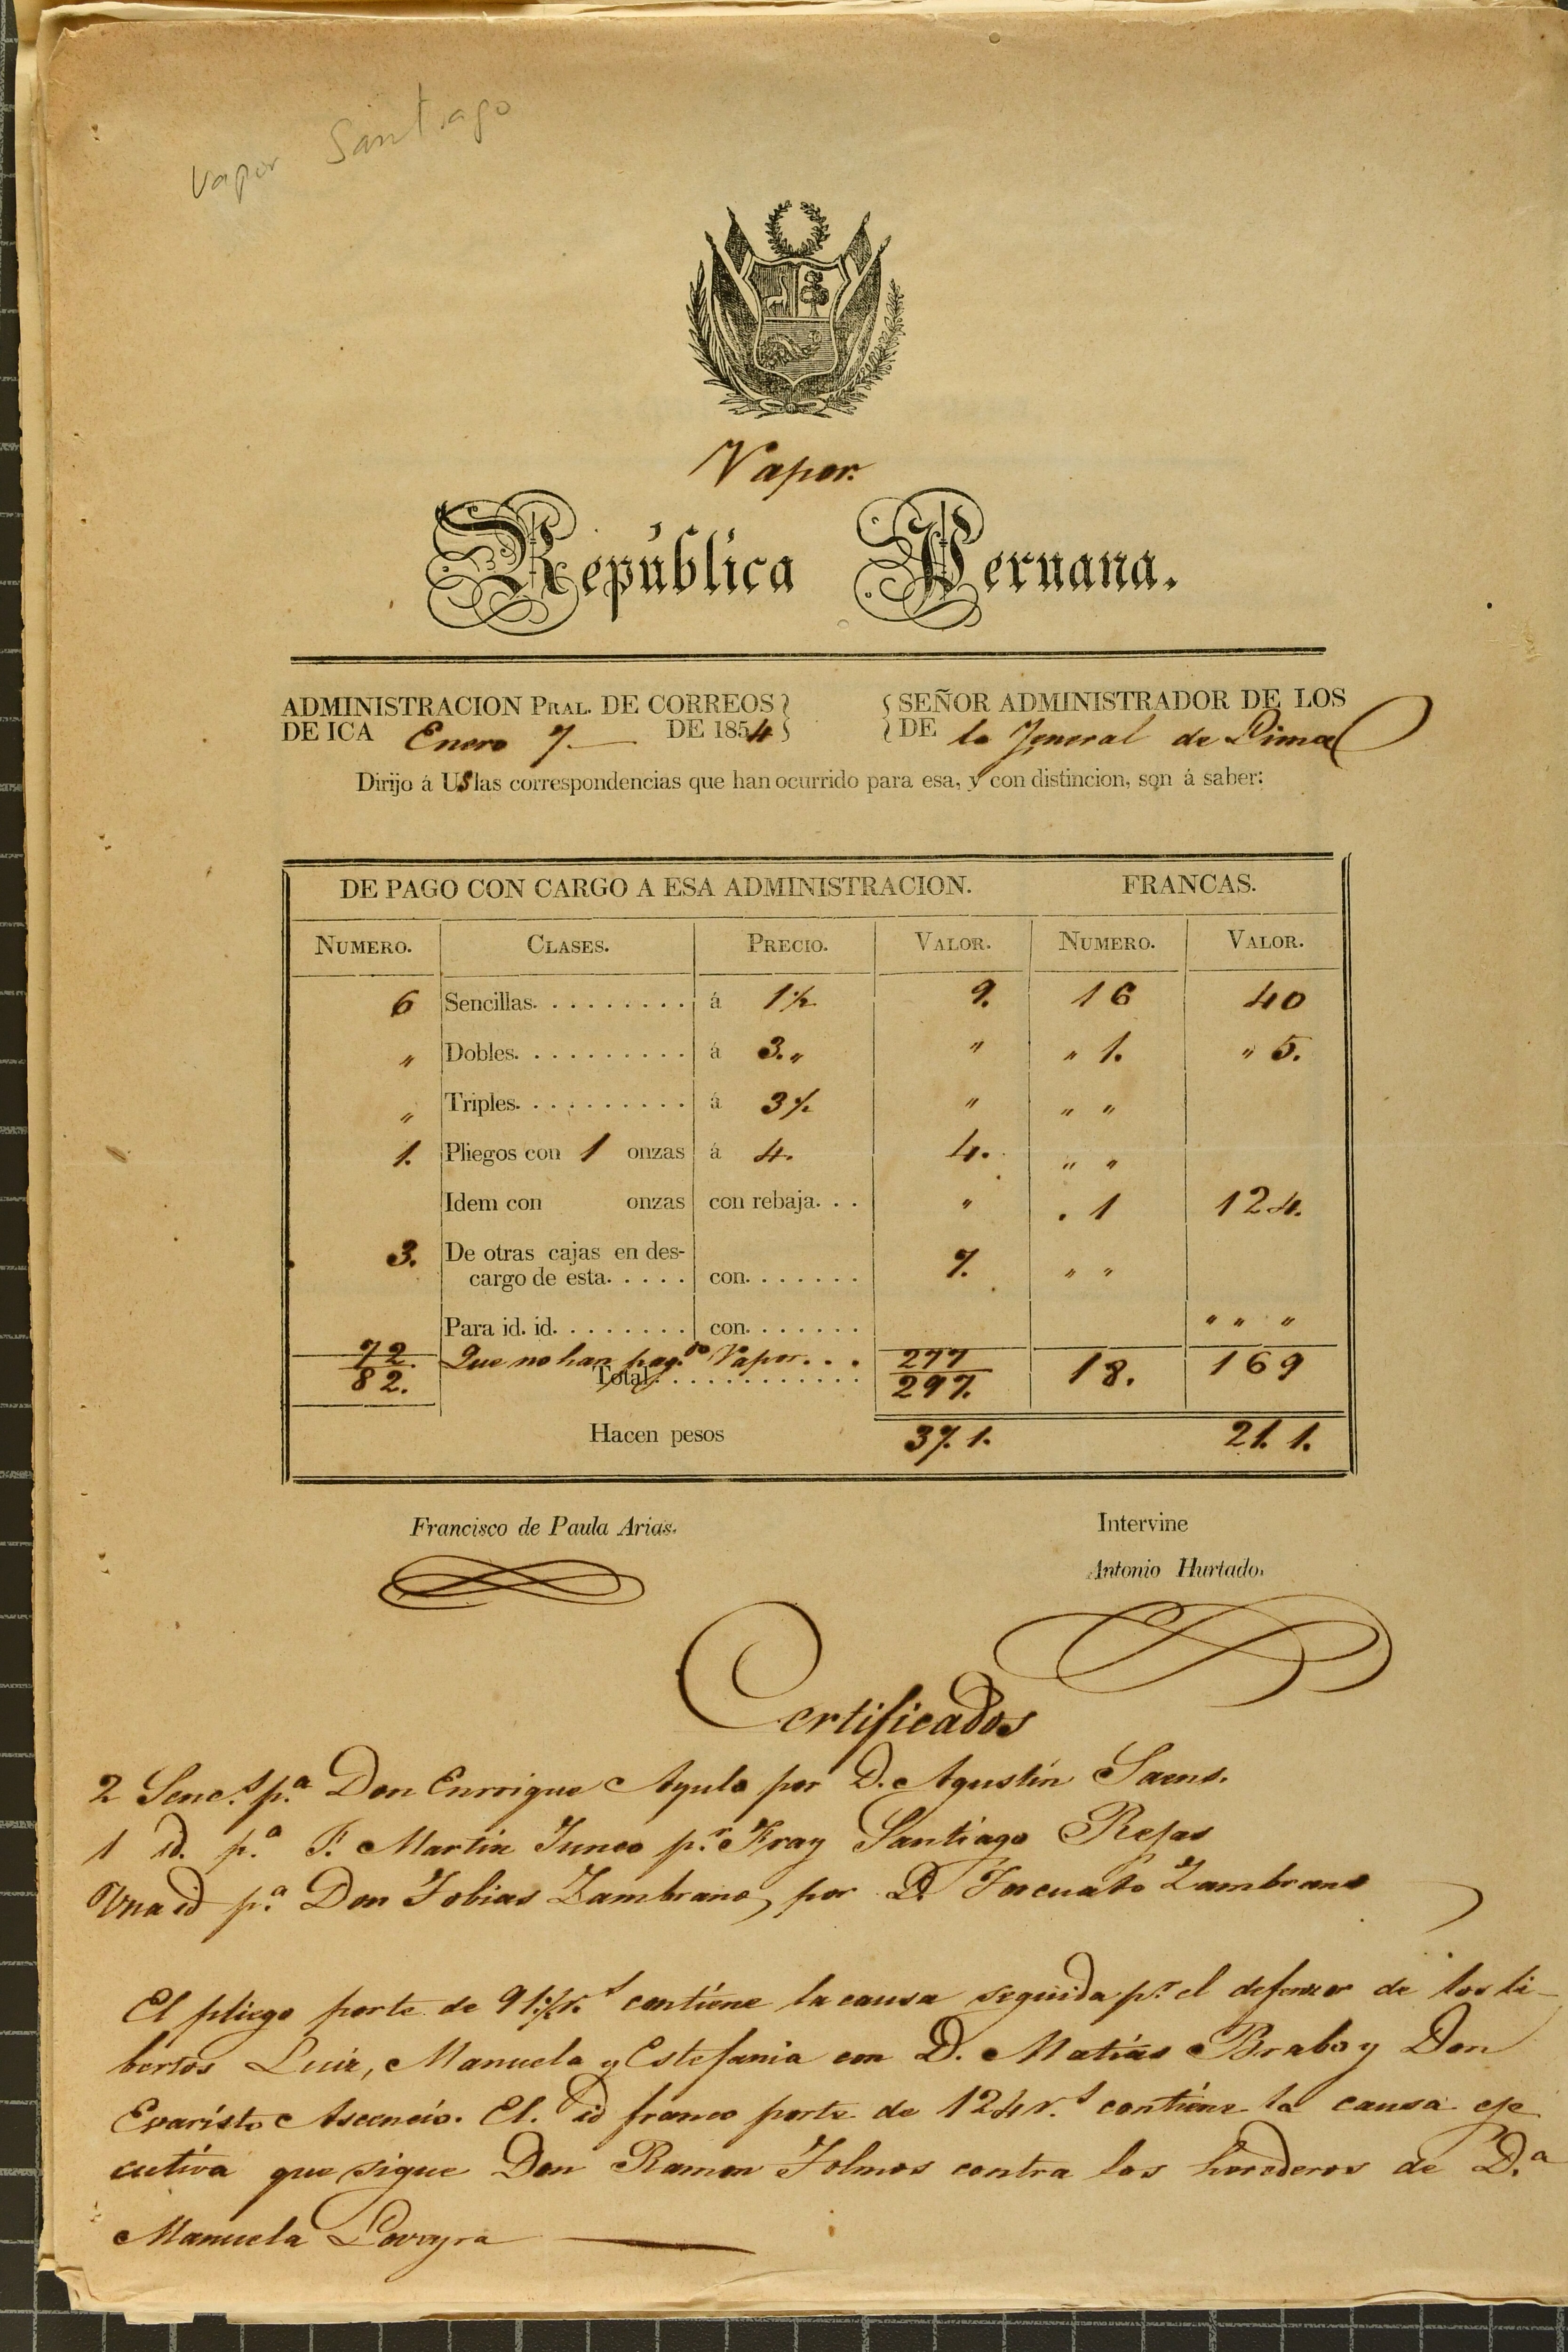 Vapor Santiago
Vapor.
República Peruana.
ADMINISTRACION PRAL. DE CORREOS SEÑOR ADMINISTRADOR DE LOS
DE ICA Enero 7 DE 1854 DE la Jeneral de Lima
Dirijo á US las correspondencias que han ocurrido para esa, y con distincion, son á saber:
DE PAGO CON CARGO A ESA ADMINISTRACION. FRANCAS.
NUMERO. CLASES. PRECIO. VALOR. NUMERO. VALOR.
6 Sencillas. . . . . . . . . á 1½ 9. 16 40
" Dobles. . . . . . . . . . á 3." " " 1. " 5.
" Triples. . . . . . . . . . á 3½ " " "
1. Pliegos con 1 onzas á 4. 4. " "
Idem con onzas con rebaja. . . " . 1 124.
3. De otras cajas en des-
cargo de esta. . . . . con. . . . . . . 7. " "
Para id. id. . . . . . . . con. . . . . . . " " "
72. Que no han pag.do Vapor. . . 277
82. Total. . . . . . . . . . . . 297. 18. 169
Hacen pesos 37. 1. 21. 1.
Francisco de Paula Arias. Intervine
Antonio Hurtado.
Certificados
2 Senc.s p.a Don Enrrique Ayulo por D. Agustin Saens.
1 id. p.a F. Martin Juneo p.r Fray Santiago Rejas
Una id p.a Don Tobias Zambrano, por D. Facundo Zambrano
El pliego porte de 91½ r.s contiene la causa seguida p.r el defensor de los li-
bertos Luiz, Manuela y Estefania con D. Matias Brabo y Don
Evaristo Asencio. El. id franco porte de 124 r.s contiene la causa eje
cutiva que sigue Don Ramon Tolmos contra los herederos de D.a
Manuela Lovayra